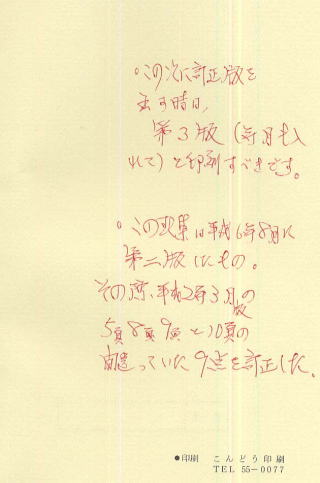 ○この次に訂正版を
出す時は、
第3版（年月も入
れて）と印刷すべきです。
○この歌集は平成6年8月に
第二版にしたもの。
その際、平成2年3月版の
5頁8頁9頁と10頁の
間違っていた9点を訂正した。
●印刷 こんどう印刷
TEL 55-0077